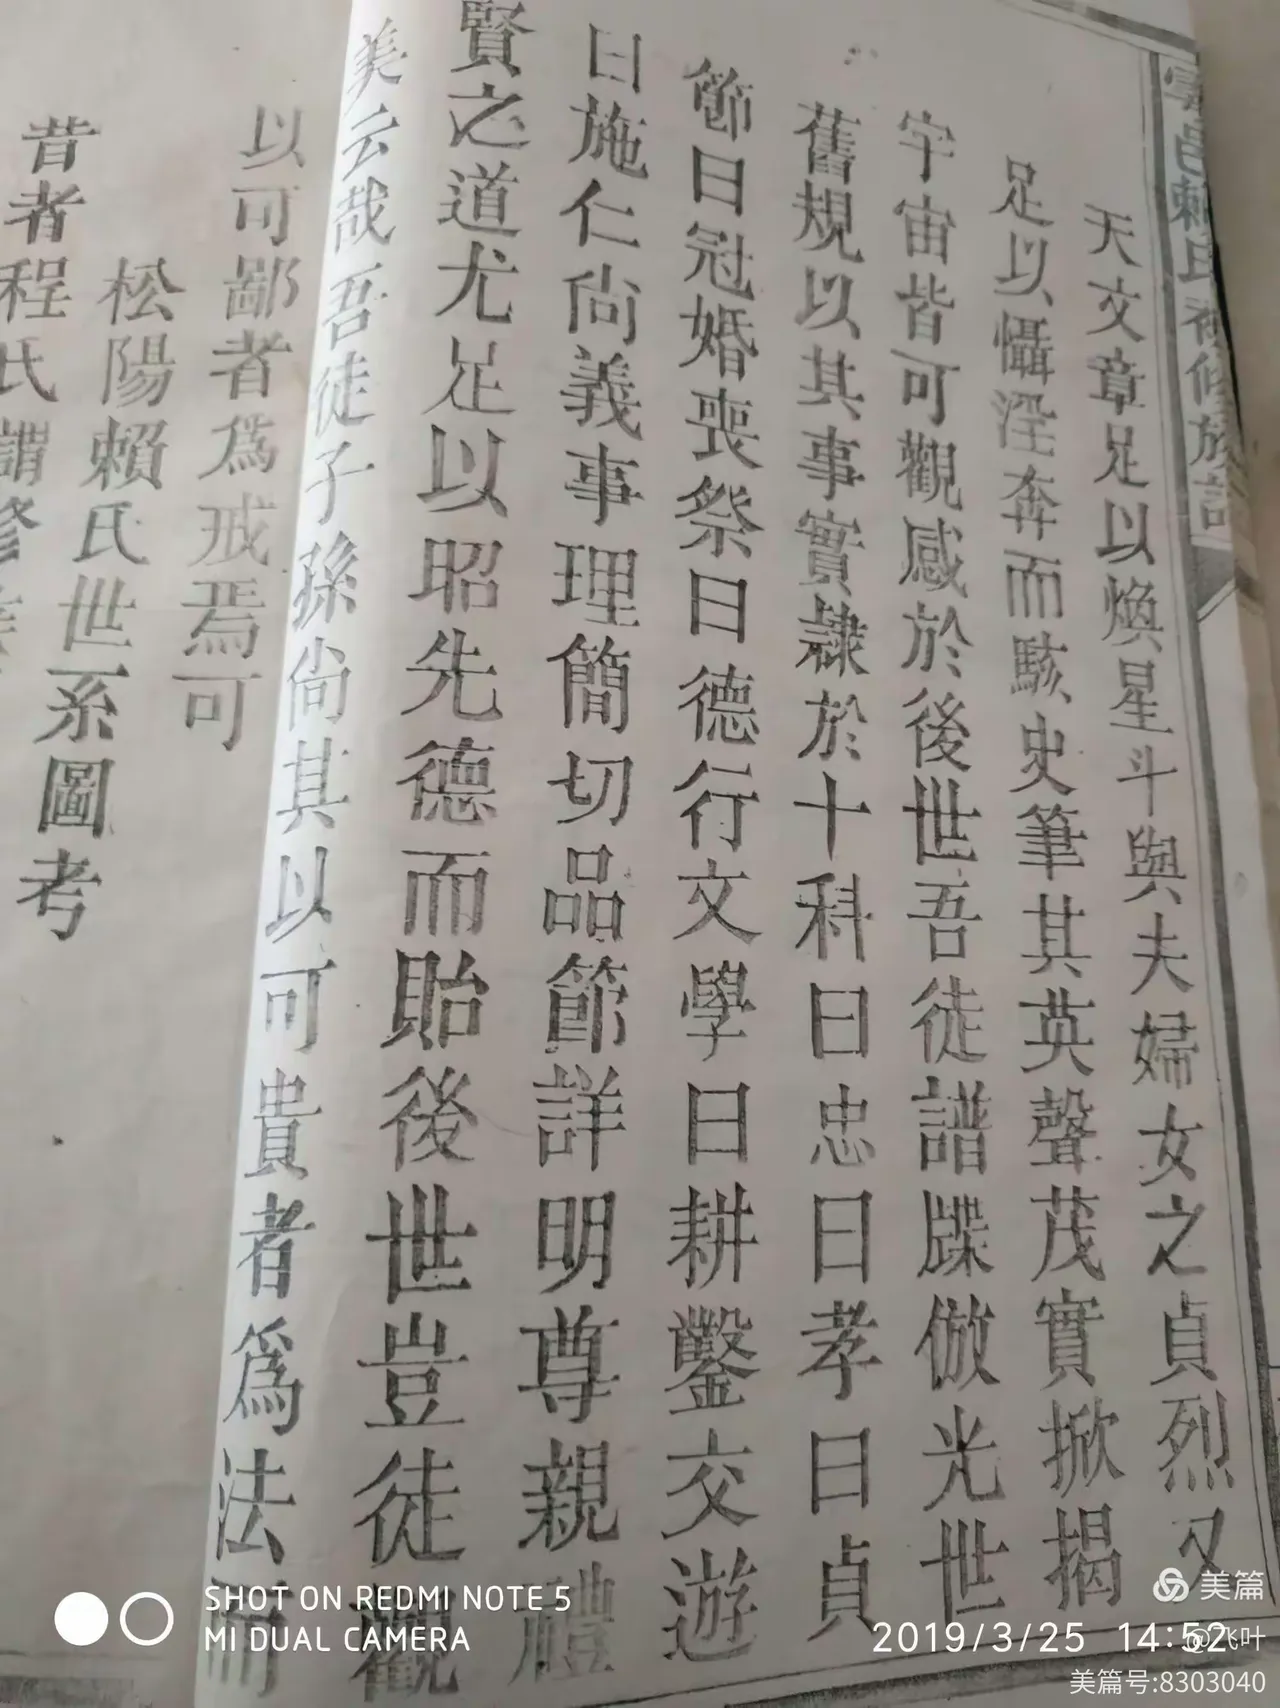 天文章足以煥星斗與夫婦女之貞烈又
足以懾淫奔而駭史筆其英聲茂實掀揭
宇宙皆可觀感於後世吾徒譜牒倣光世
舊規以其事實隸於十科曰忠曰孝曰貞
節曰冠婚喪祭曰德行文學曰耕鑿交遊
曰施仁尙義事理簡切品節詳明尊親禮
賢之道尤足以昭先德而貽後世豈徒觀
美云哉吾徒子孫尙其以可貴者爲法而
以可鄙者爲戒焉可
松陽賴氏世系圖考
昔者程氏謂修
SHOT ON REDMI NOTE 5
MI DUAL CAMERA
2019/3/25 14:52
美篇
@飞叶
美篇号:8303040